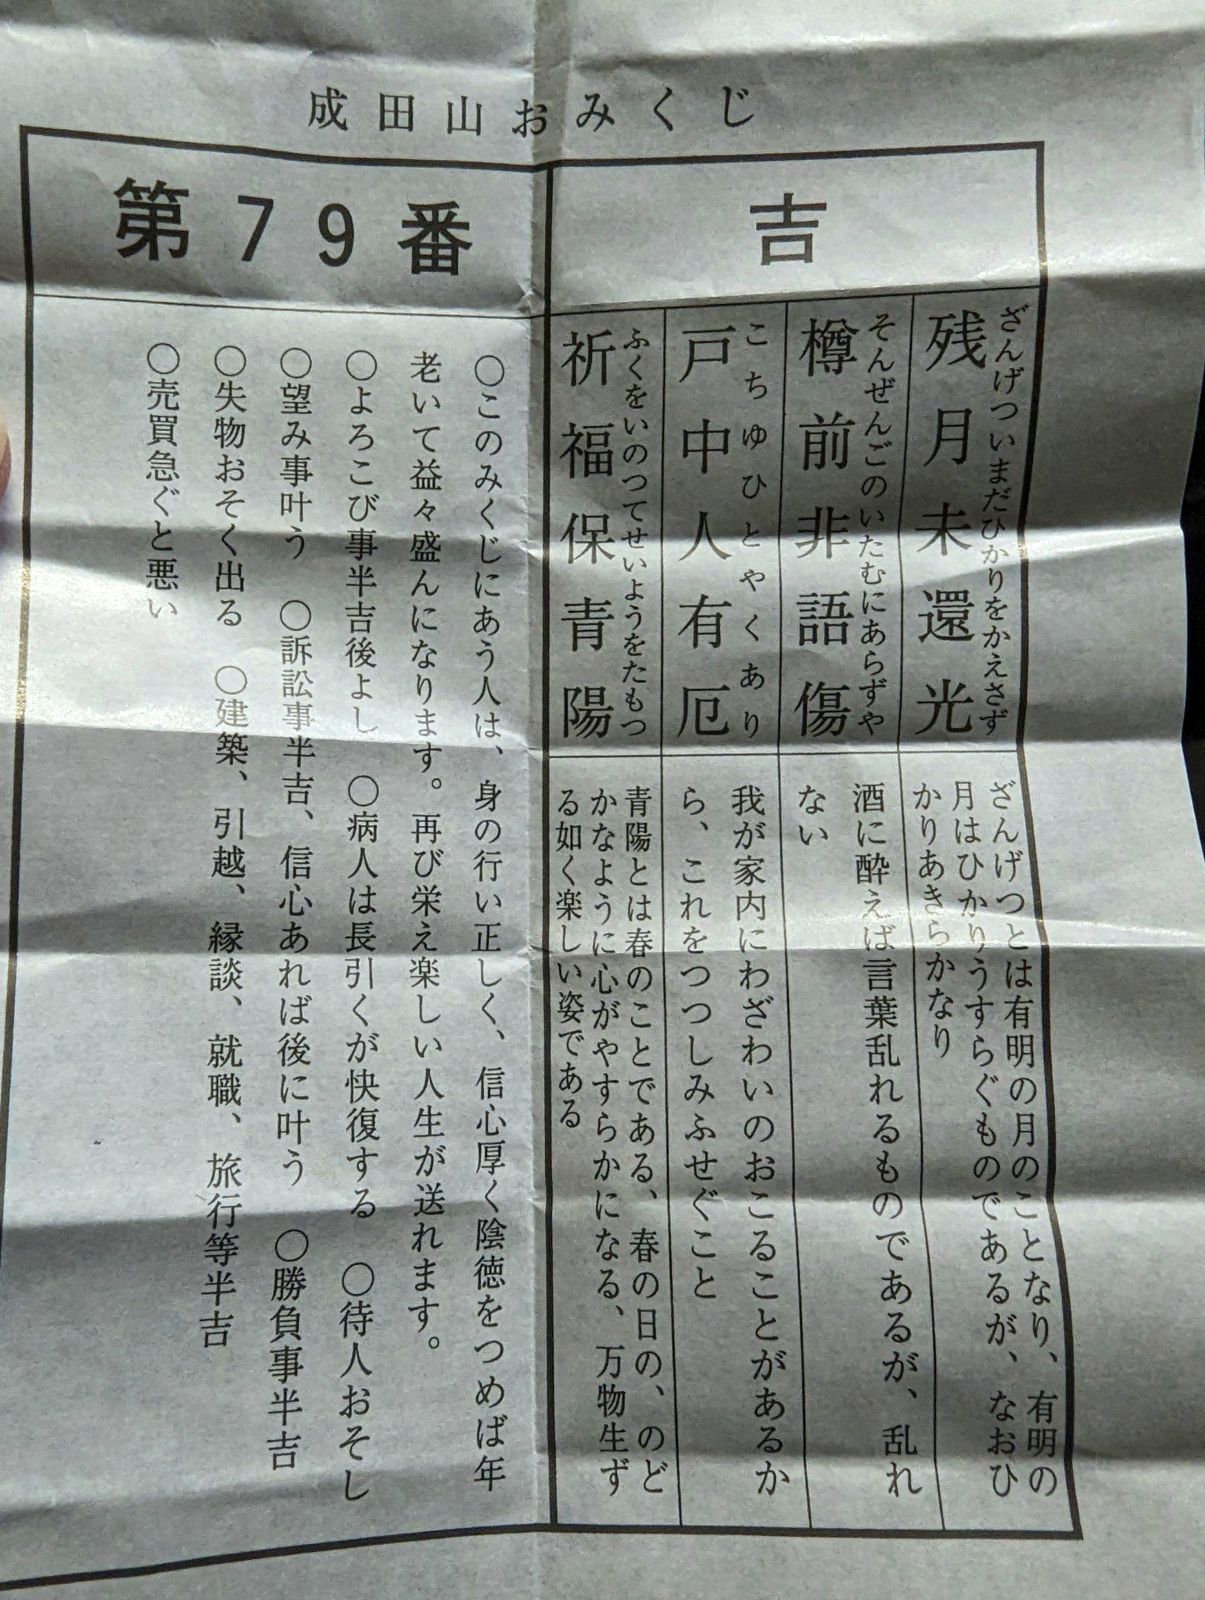 成田山おみくじ
吉
残月未還光
ざんげついまだひかりをかえさず
ざんげつとは有明の月のことなり、有明の
月はひかりうすらぐものであるが、なおひ
かりあきらかなり
樽前非語傷
そんぜんごのいたむにあらずや
酒に酔えば言葉乱れるものであるが、乱れ
ない
戸中人有厄
こちゆひとやくあり
我が家内にわざわいのおこることがあるか
ら、これをつつしみふせぐこと
祈福保青陽
ふくをいのつてせいようをたもつ
青陽とは春のことである、春の日の、のど
かなように心がやすらかになる、万物生ず
る如く楽しい姿である
第79番
○このみくじにあう人は、身の行い正しく、信心厚く陰徳をつめば年
老いて益々盛んになります。再び栄え楽しい人生が送れます。
○よろこび事半吉後よし ○病人は長引くが快復する ○待人おそし
○望み事叶う ○訴訟事半吉、信心あれば後に叶う ○勝負事半吉
○失物おそく出る ○建築、引越、縁談、就職、旅行等半吉
○売買急ぐと悪い